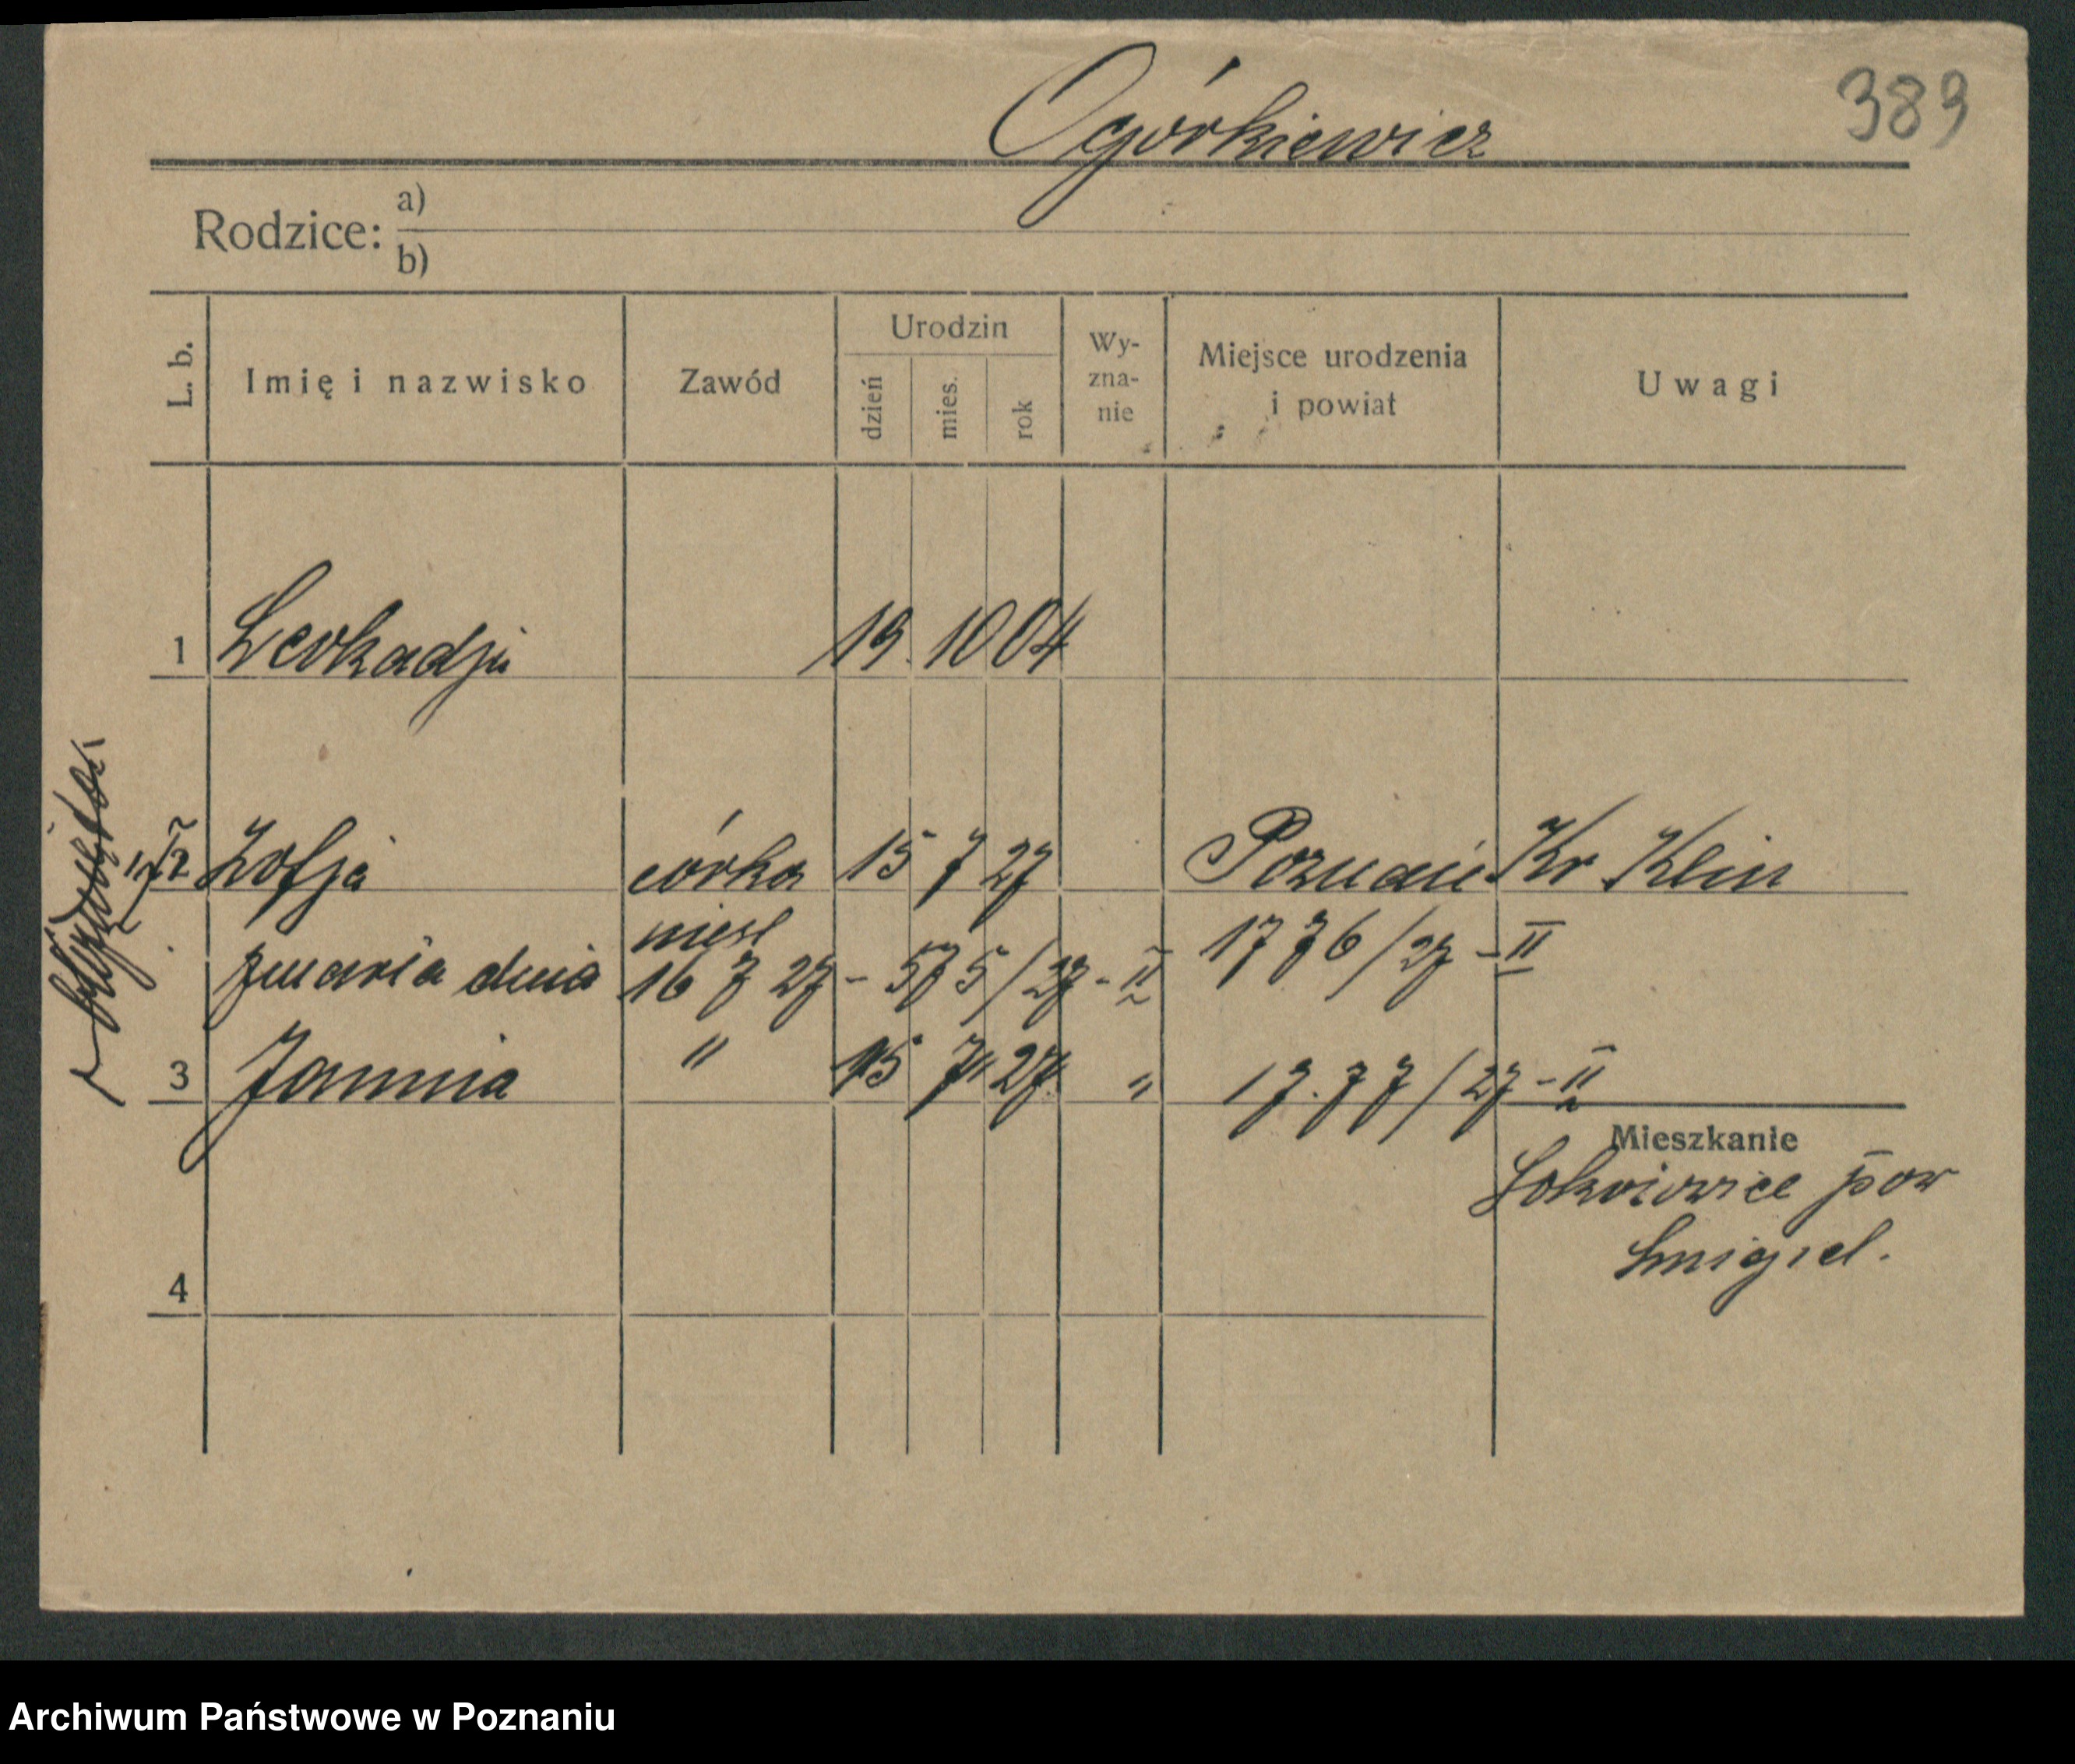 Ogórkiewicz
389
Rodzice: a)
b)
L. b. Imię i nazwisko Zawód Urodzin dzień mies. rok Wy-zna-nie Miejsce urodzenia i powiat Uwagi
1 Leokadja 19. 10 04
2 Zofja córka 15 7 27 Poznań Kr Klin
niesl 1776/27 - II
zmarła dnia 16 7 27 - 575/27 - II
3 Janina " 15 7 27 " 17.77/27 - II
Mieszkanie
pow
Smigiel.
4
Archiwum Państwowe w Poznaniu